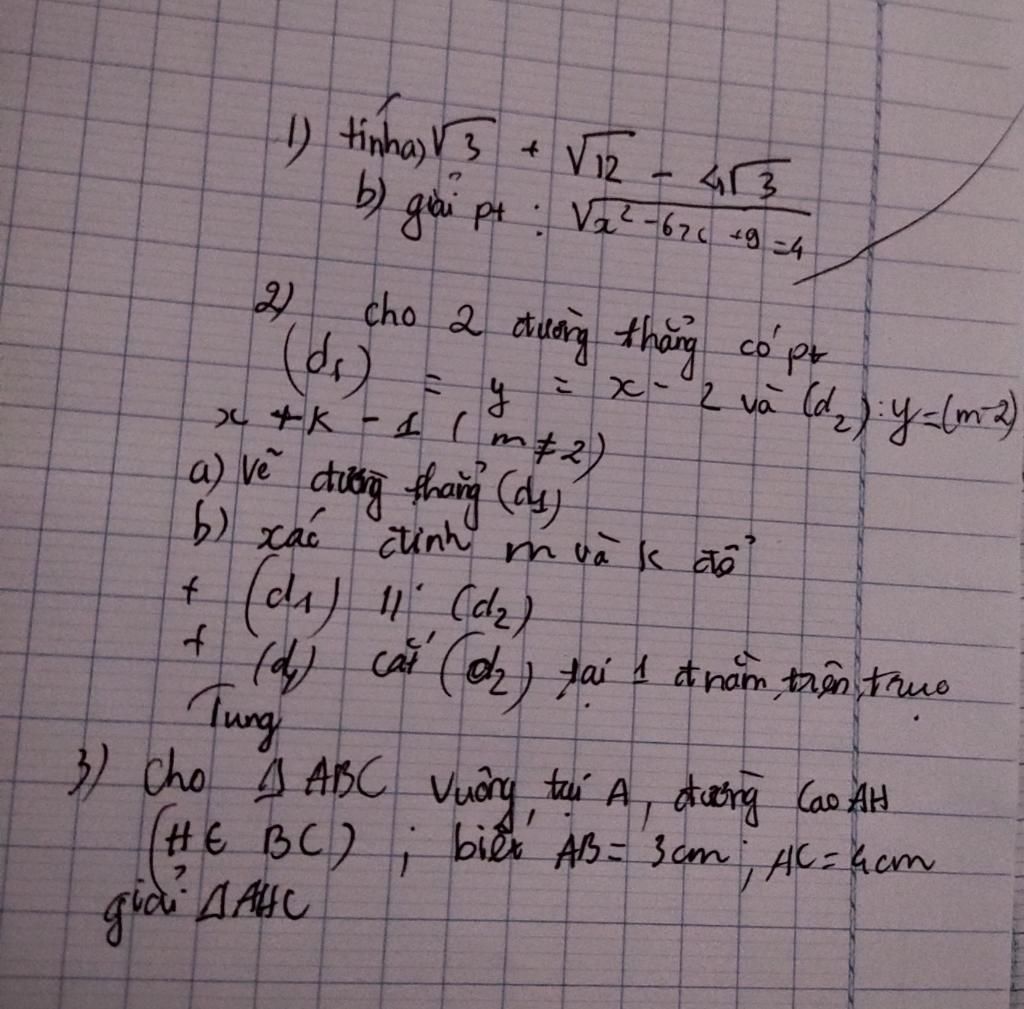 1) tính a) √3 + √12 - 4√3
b) giải pt : √x² - 6x + 9 = 4
2) cho 2 đường thẳng có pt
(d₁) = y = x - 2 và (d₂) : y = (m-2)
x + k - 1 ( m ≠ 2)
a) vẽ đường thẳng (d₁)
b) xác định m và k để
+ (d₁) // (d₂)
+ (d₁) cắt (d₂) tại 1 đ nằm trên trục
Tung
3) Cho Δ ABC vuông tại A, đường cao AH
(H ∈ BC) ; biết AB = 3cm ; AC = 4cm
giải ΔAHC